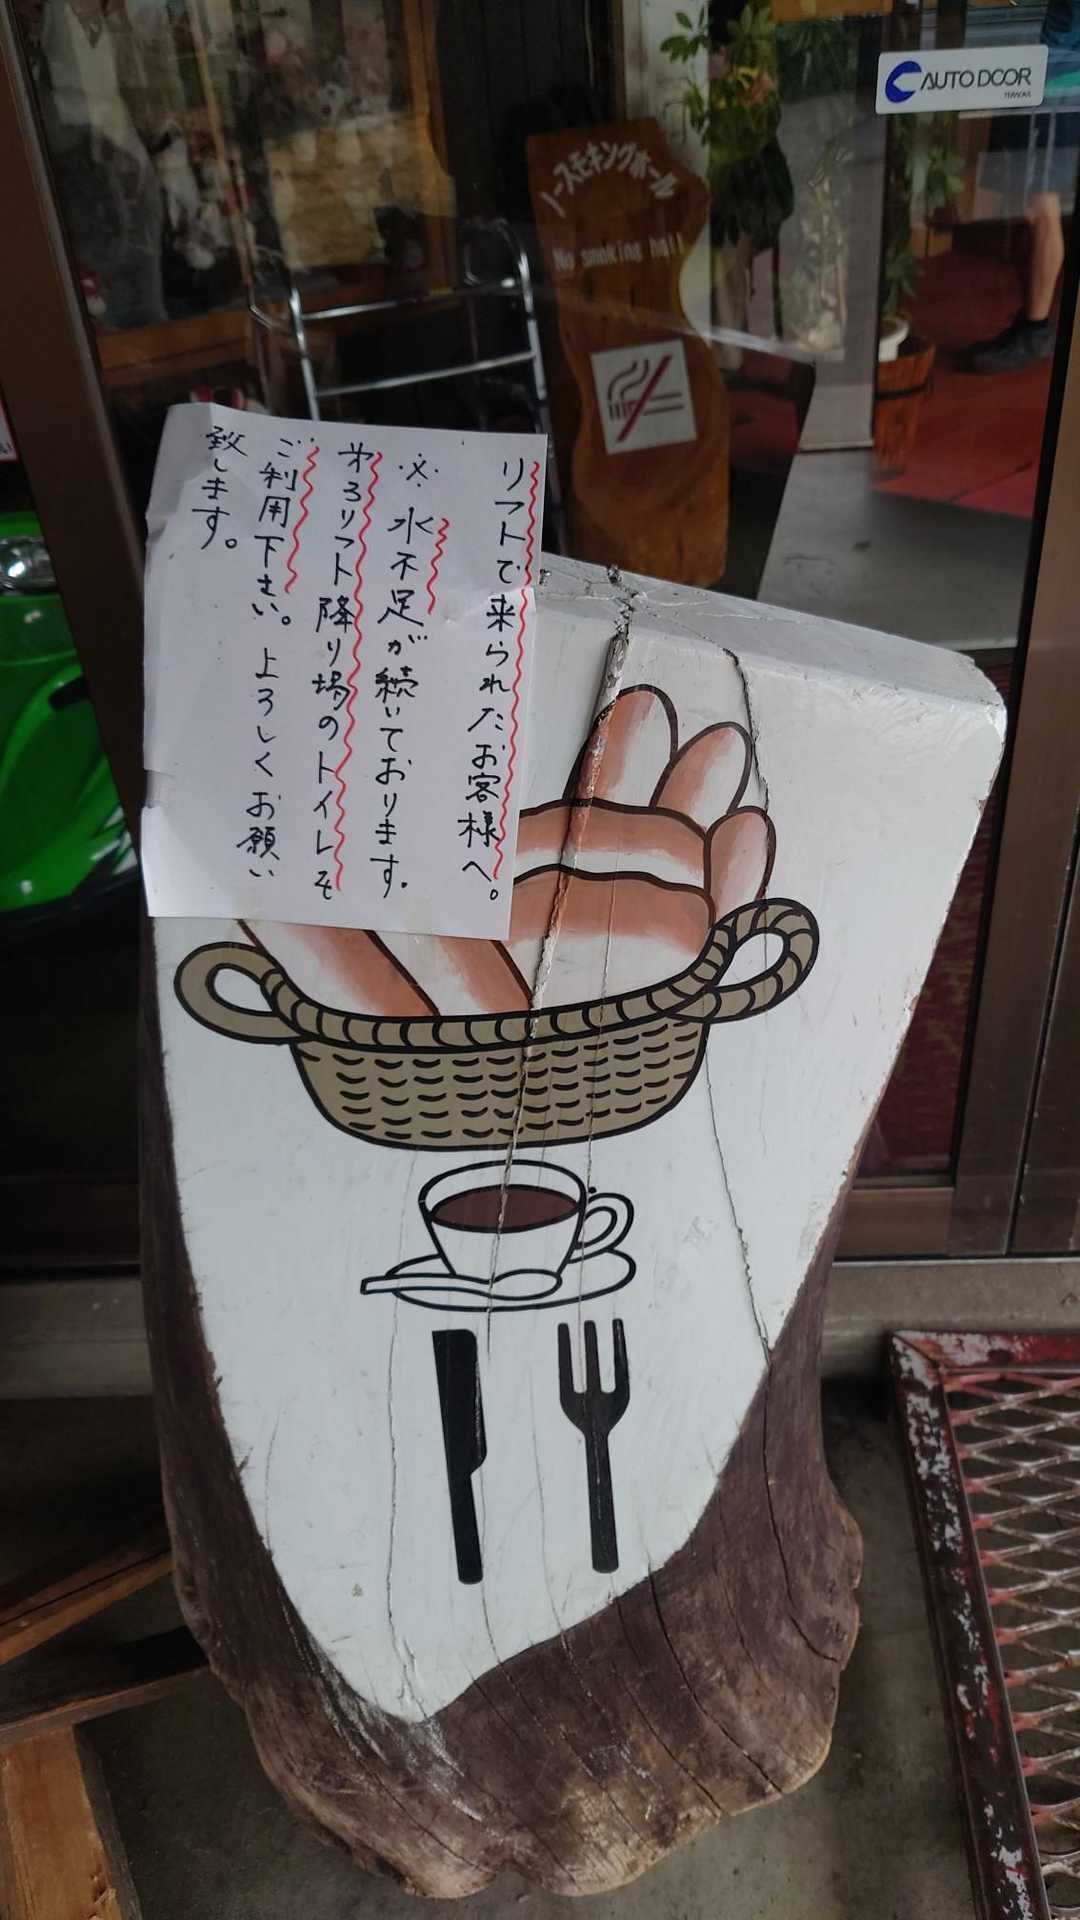 リフトで来られたお客様へ。
※水不足が続いております。
第3リフト降り場のトイレを
ご利用下さい。よろしくお願い
致します。
ノースモキングホール
No smoking hall
AUTO DOOR